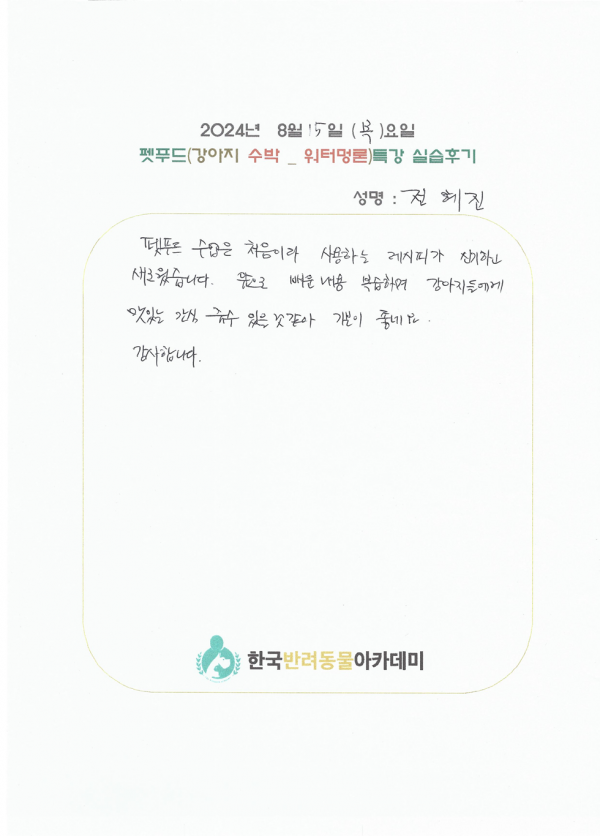 2024년 8월 15일 (목)요일
펫푸드(강아지 수박 _ 워터멍론)특강 실습후기
성명 : 전 혜진
펫푸드 수업은 처음이라 사용하는 레시피가 신기하고
새로웠습니다. 앞으로 배운 내용 복습하며 강아지들에게
맛있는 간식 줄수 있을 것 같아 기분이 좋네요.
감사합니다.
한국반려동물아카데미